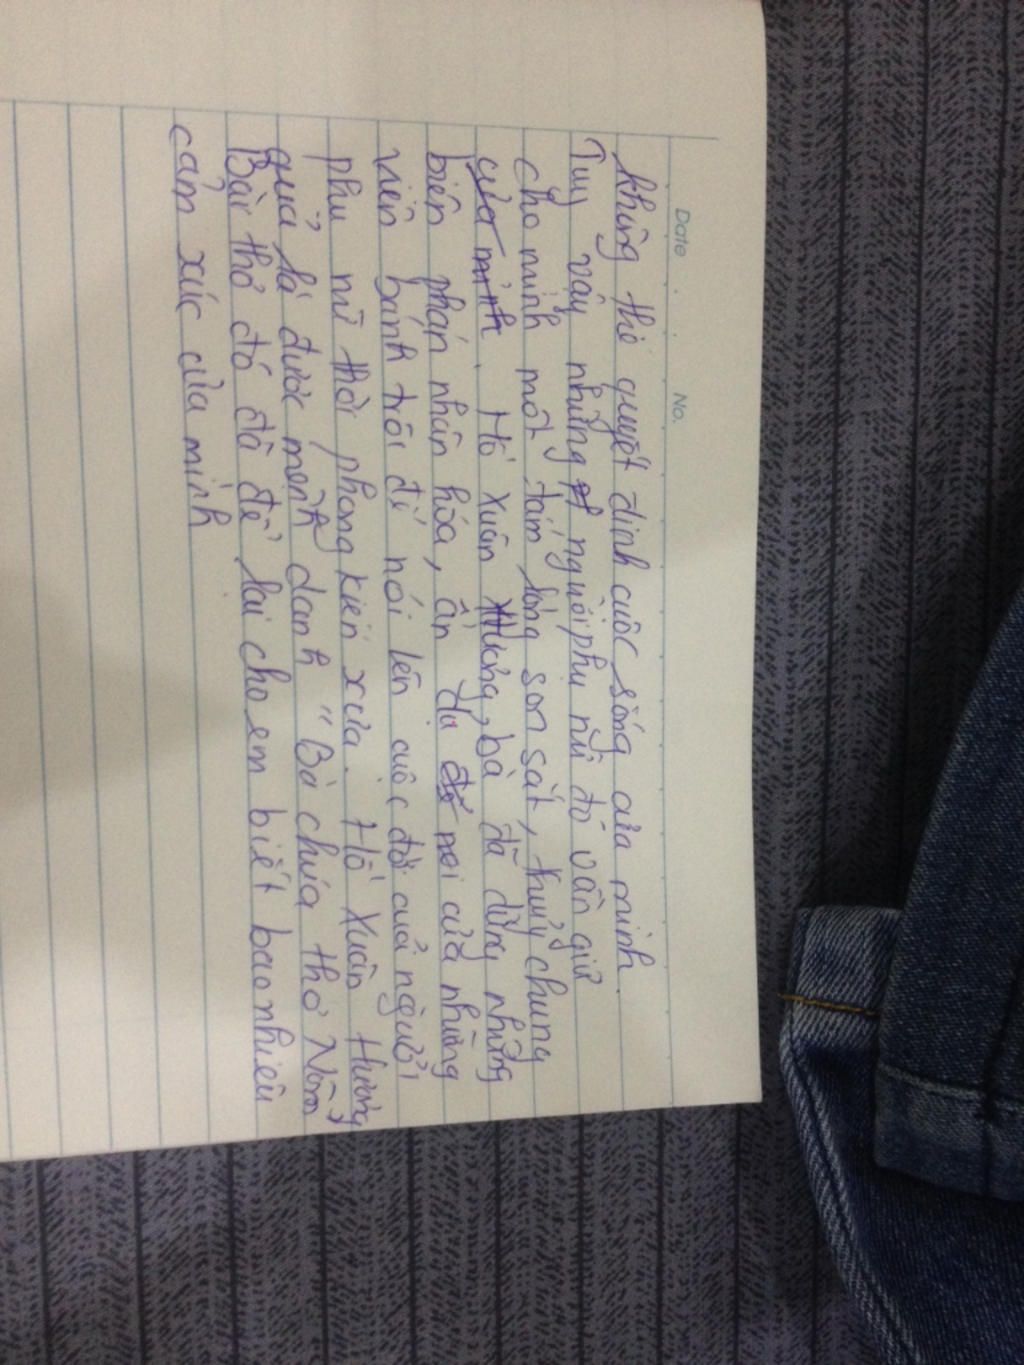 Date No.
không thể quyết định cuộc sống của mình.
Tuy vậy những người phụ nữ đó vẫn giữ
cho mình một tấm lòng son sắt, thuỷ chung
của mình. Hồ Xuân Hương, bà đã dùng những
biện pháp nhân hóa, ẩn dụ nơi của những
viên bánh trôi để nói lên cuộc đời của người
phụ nữ thời phong kiến xưa. Hồ Xuân Hương
quả là được mệnh danh "Bà chúa thơ Nôm"
Bài thơ đó đã để lại cho em biết bao nhiêu
cảm xúc của mình